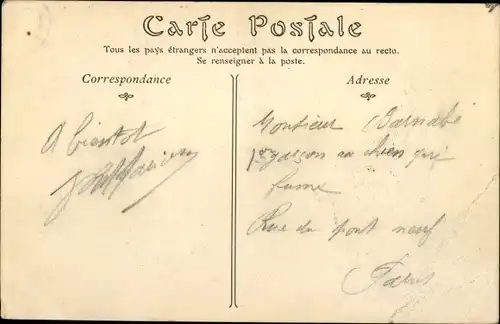 Carte Postale
Tous les pays étrangers n'acceptent pas la correspondance au recto.
Se renseigner à la poste.
Correspondance
A bientot
Adresse
Monsieur Barnabé
1er garçon au chien qui
fume
Rue du pont neuf
Paris